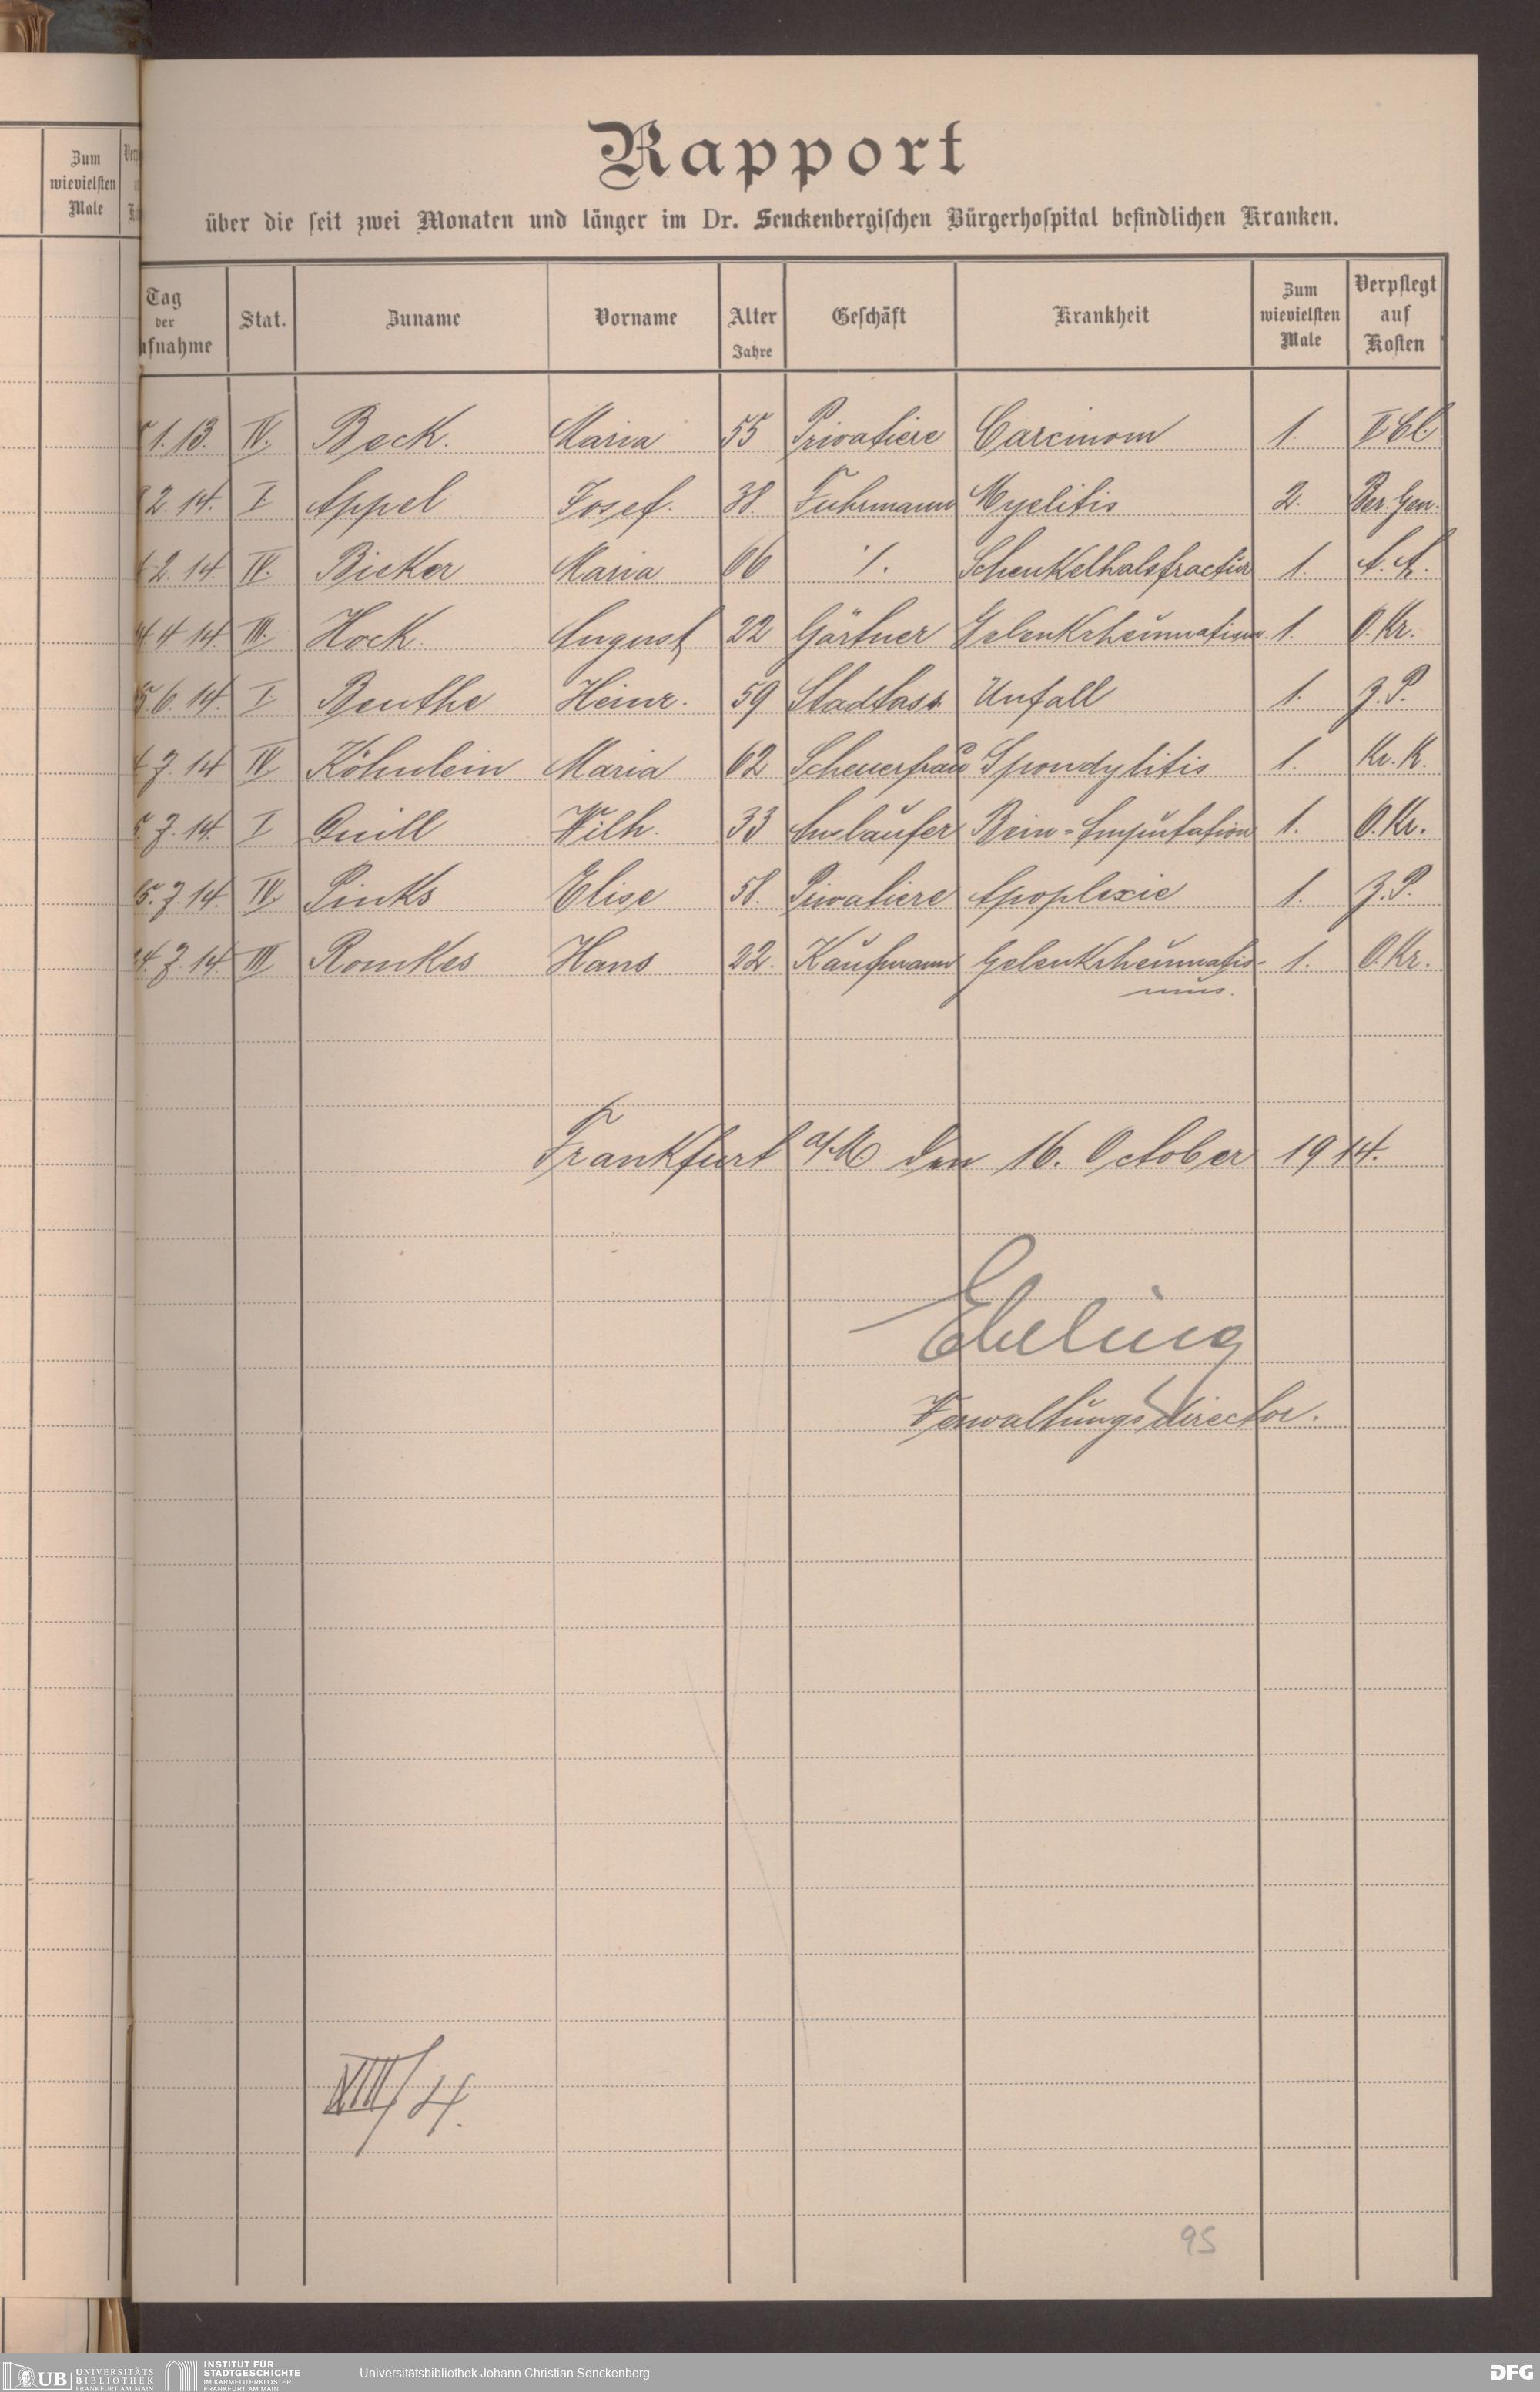 Zum
wievielsten
Male
Rapport
über die seit zwei Monaten und länger im Dr. Senckenbergischen Bürgerhospital befindlichen Kranken.
Tag der ufnahme Stat. Zuname Vorname Alter Jahre Geschäft Krankheit Zum wievielsten Male Verpflegt auf Kosten
1. 13. IV. Beck. Maria 55 Privatiere Carcinom 1. II Cl.
2. 14. I Appel Josef. 38. Fuhrmann Myelitis 2. Ber. Gen.
2. 14. IV. Bicker Maria 66 ./. Schenkelhalsfractur 1. A. A.
4. 14. III. Hock August 22 Gärtner Gelenkrheumatism. 1. O. Kr.
5. 6. 14. I Benthe Heinr. 59 Unfall 1. Z. P.
7. 14 IV Köhnlein Maria 62 Scheuerfrau Spondylitis 1. Kr. K.
5. 7. 14. I Quill Wilh. 33 Ausläufer Bein-Amputation 1. O. Kr.
15. 7. 14. IV Pinks Elise 58. Privatiere Apoplexie 1. Z. P.
24. 7. 14. III Romkes Hans 22. Kaufmann Gelenkrheumatis- 1. O. Kr.
mus.
Frankfurt a/M. den 16. October 1914.
Ebeling
Verwaltungsdirector.
VIII/4.
95
UB UNIVERSITÄTS
BIBLIOTHEK
FRANKFURT AM MAIN
INSTITUT FÜR
STADTGESCHICHTE
IM KARMELITERKLOSTER
FRANKFURT AM MAIN
Universitätsbibliothek Johann Christian Senckenberg
DFG